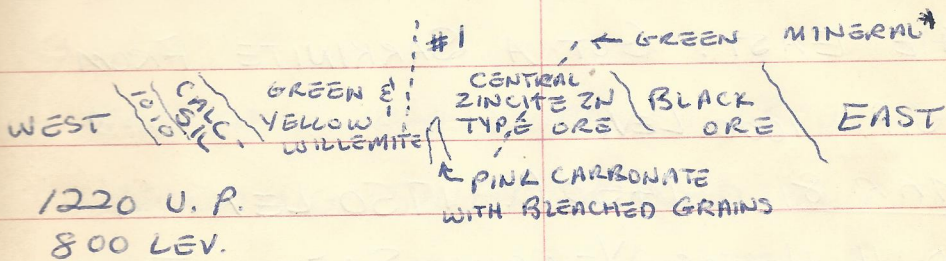 #1
← GREEN MINERAL*
WEST
1010
CALC SIL.
GREEN &
YELLOW
WILLEMITE
CENTRAL
ZINCITE ZN
TYPE ORE
BLACK
ORE
EAST
PINK CARBONATE
WITH BLEACHED GRAINS
1220 U.P.
800 LEV.